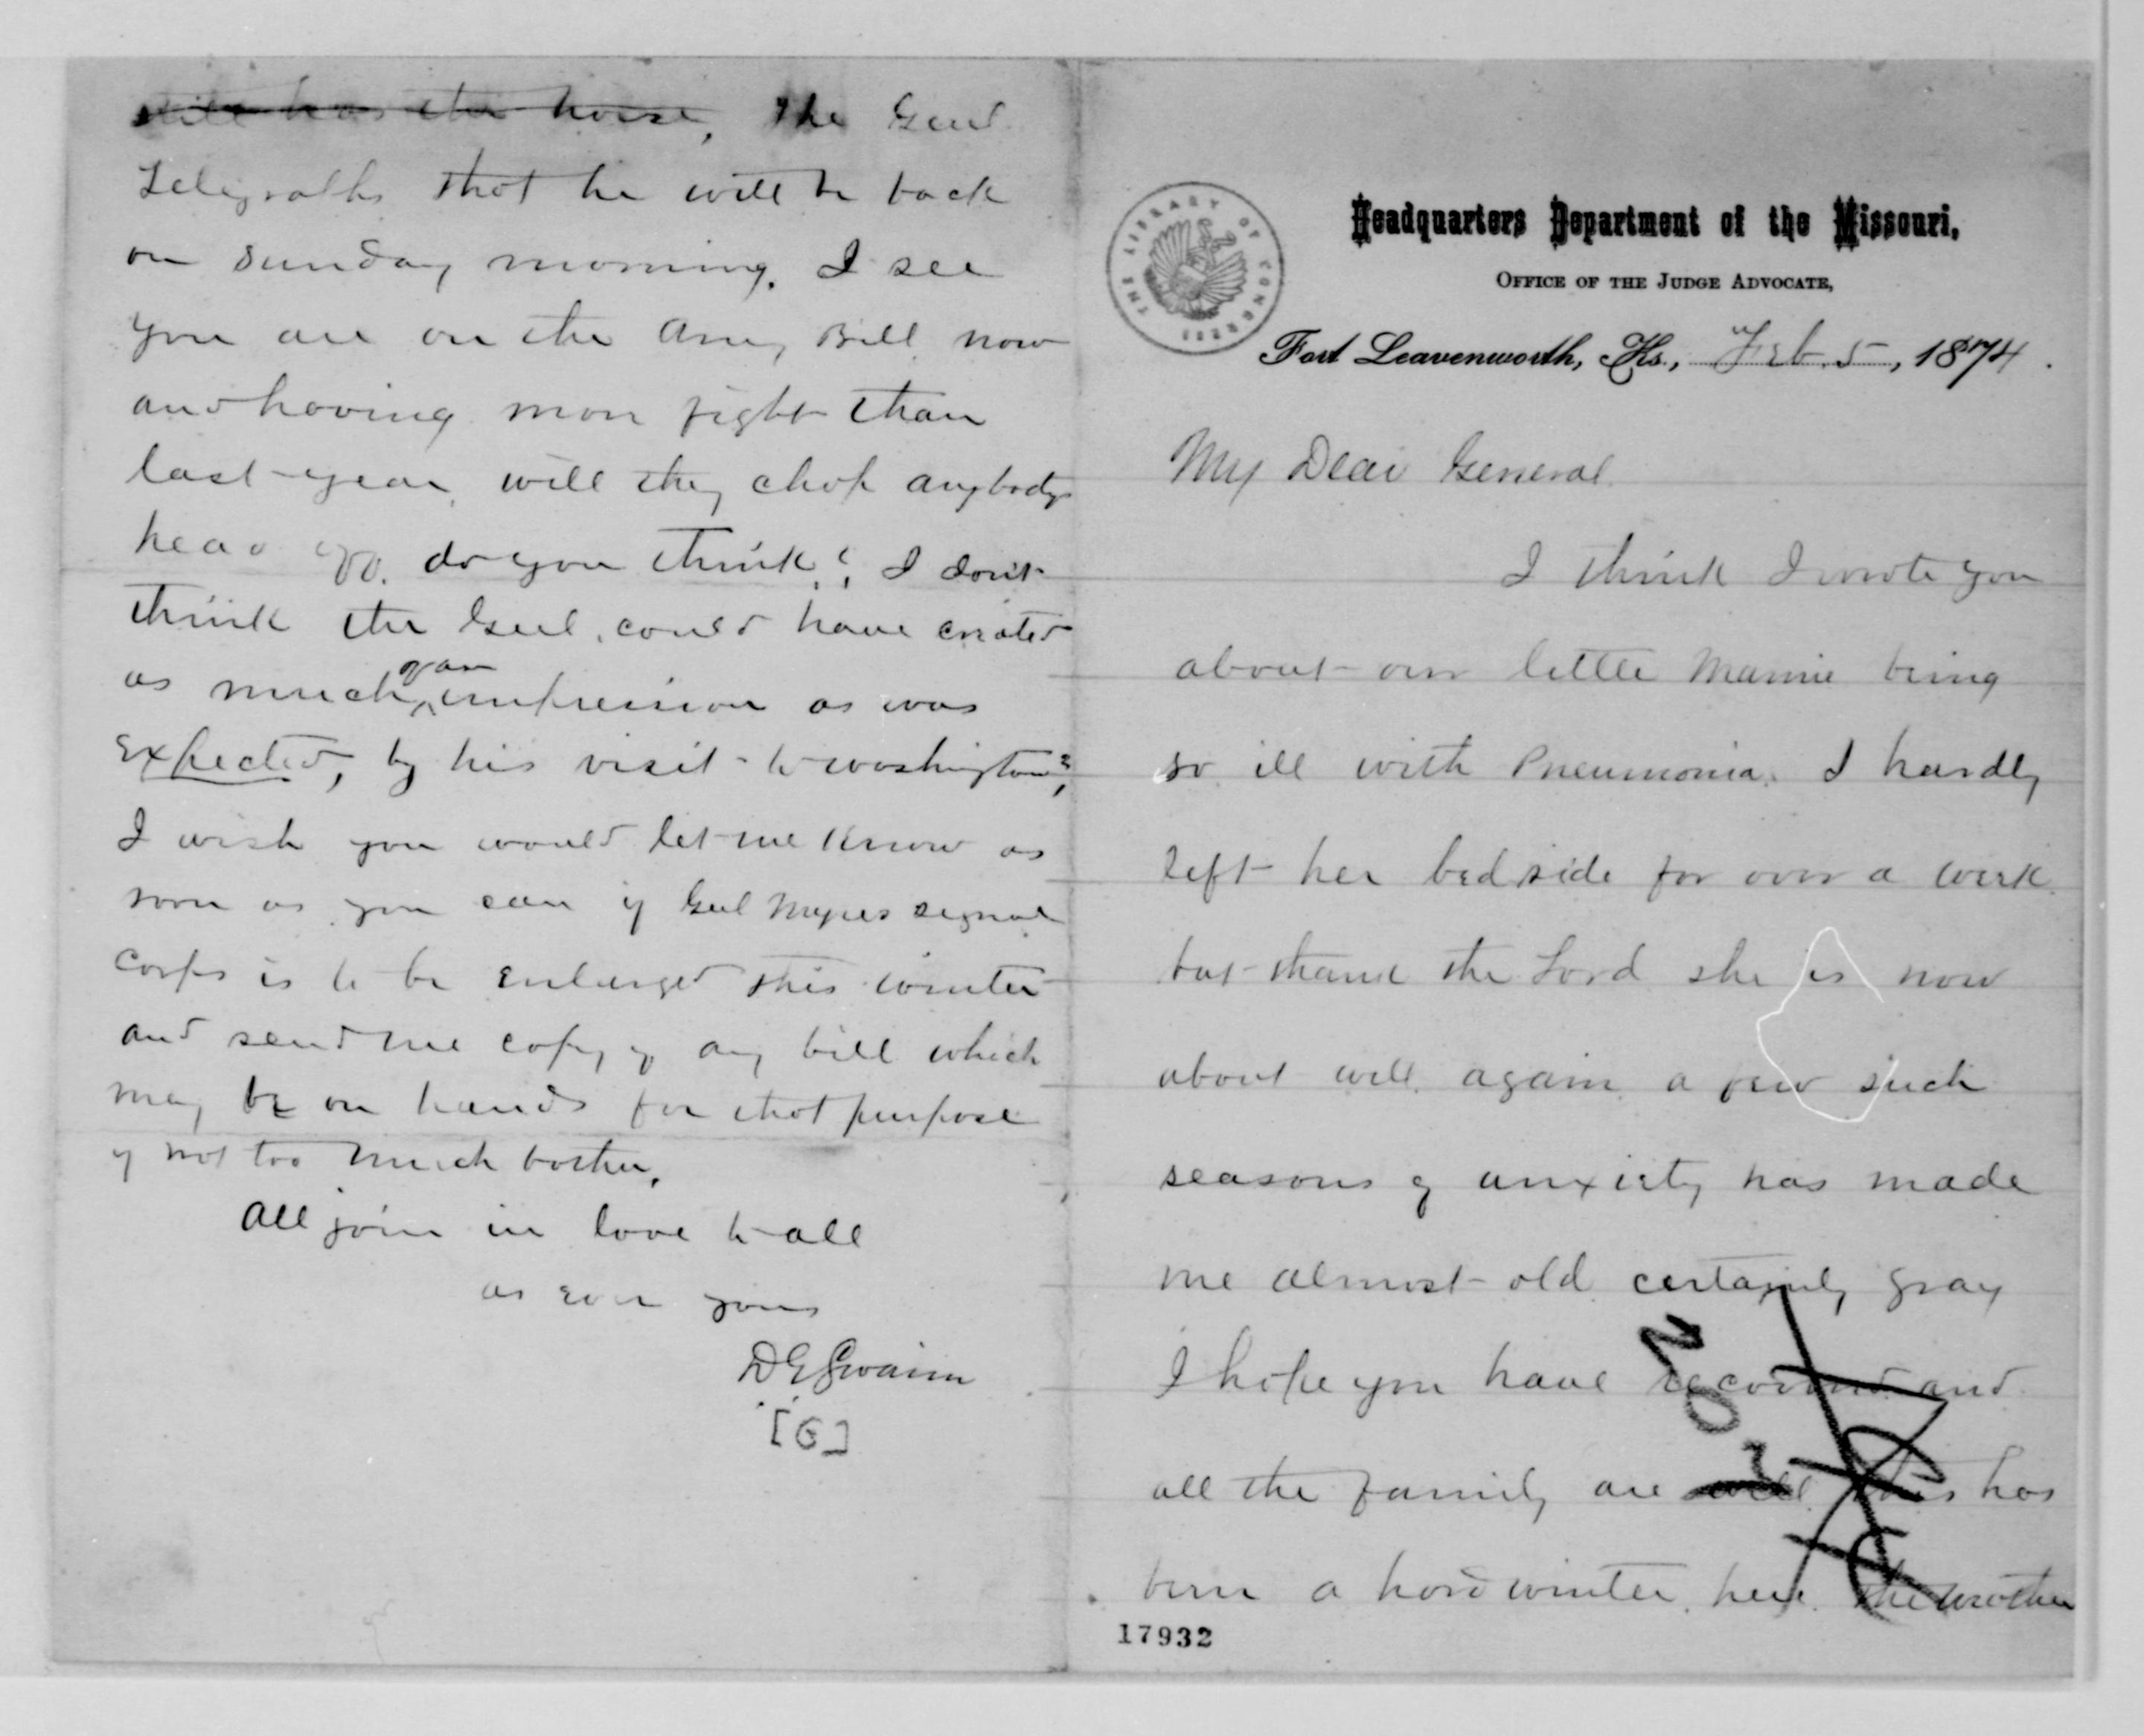 still has the horse, The Genl.
Telegraphs that he will be back
on Sunday morning. I see
you are on the Army Bill now
and having more fight than
last year, will they chop anybodys
head off. do you think? I don't
think the Genl. could have created
as much of an impression as was
expected, by his visit to Washington?
I wish you would let me know as
soon as you can if Genl Myers signal
corps is to be enlarged this winter
and send me copy of any bill which
may be on hands for that purpose
if not too much bother.
All join in love to all
as ever yours
D G Swaim
[G]
THE LIBRARY OF CONGRESS
Headquarters Department of the Missouri,
OFFICE OF THE JUDGE ADVOCATE,
Fort Leavenworth, Ks., Feb. 5, 1874.
My Dear General.
I think I wrote you
about our little Mamie being
so ill with Pneumonia. I hardly
left her bedside for over a week
but thank the Lord she is now
about well again. a few such
seasons of anxiety has made
me almost old certainly gray
I hope you have recovered and
all the family are well. This has
been a hard winter here. The weather
17932